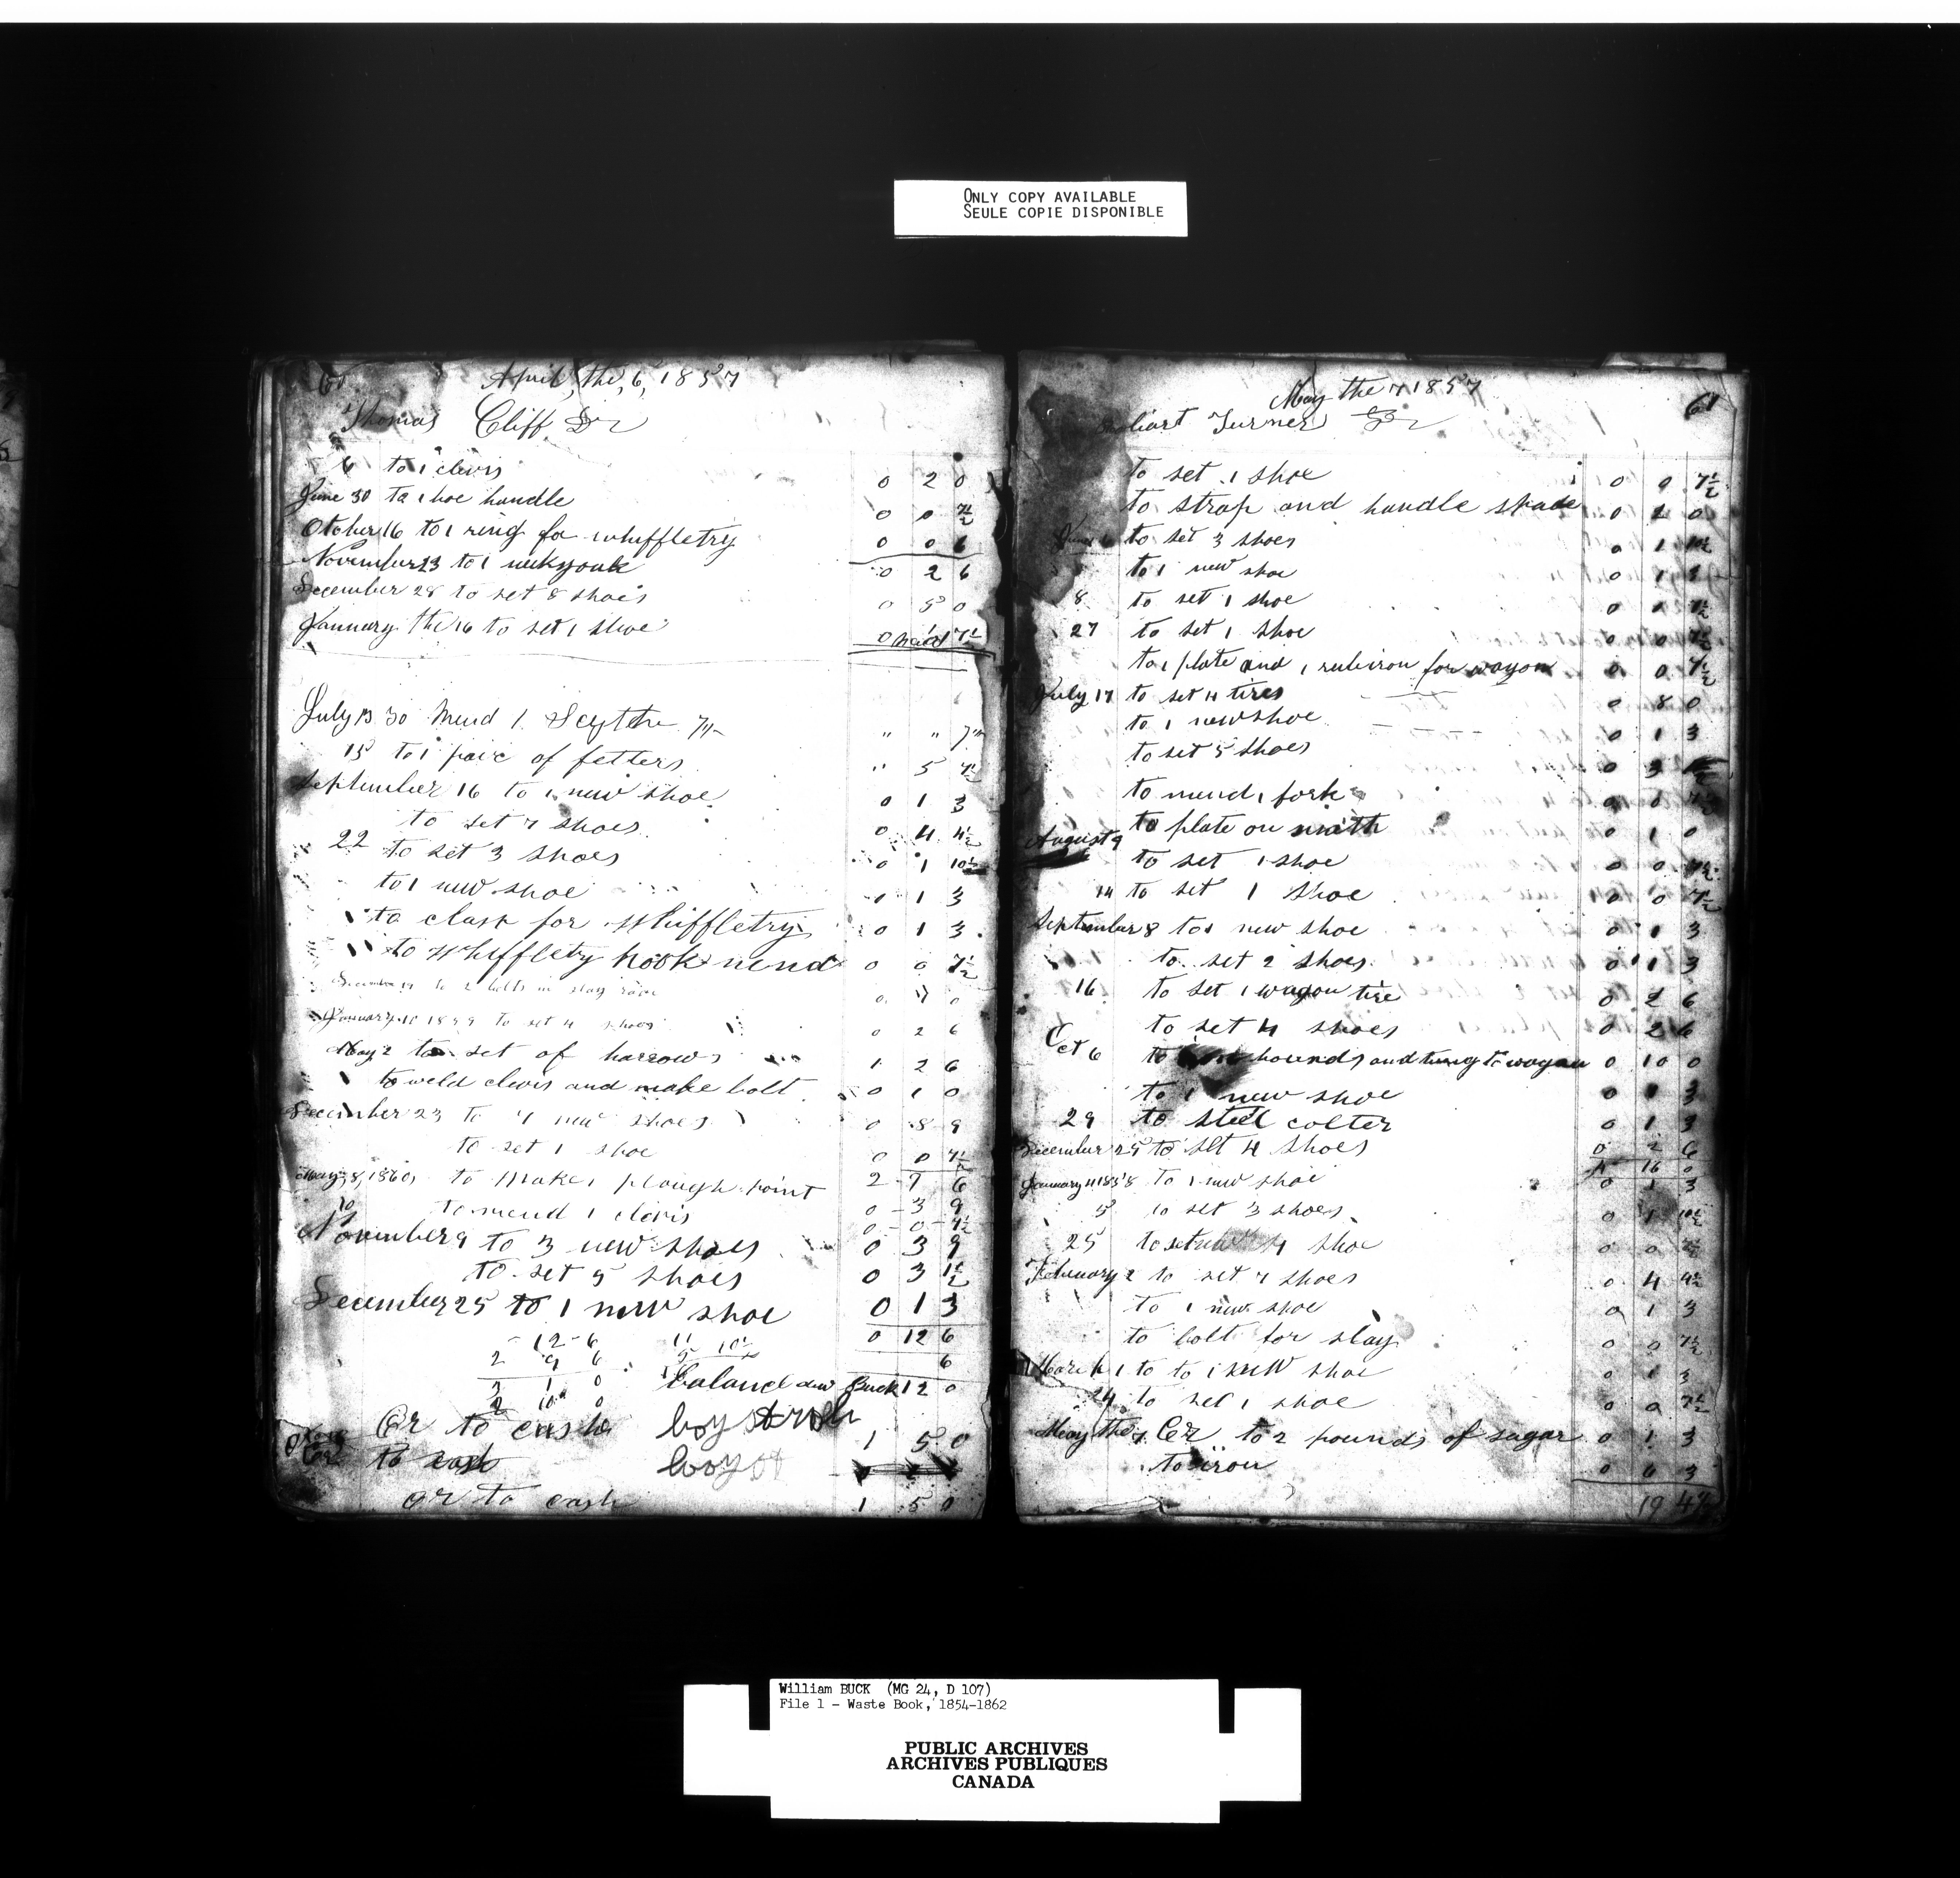 ONLY COPY AVAILABLE
SEULE COPIE DISPONIBLE
April, the, 6, 1857
Thomas Cliff Dr
6 to 1 clevis 0 2 0
June 30 to 1 hoe handle 0 0 7½
October 16 to 1 ring for whiffletry 0 0 6
November 23 to 1 neckyouk 0 2 6
December 28 to set 8 shoes 0 5 0
January the 16 to set 1 shoe 0 7½
July 13 30 Mend 1 Scythe 7½ " " 7½
15 to 1 paic of fetters " 5 7½
September 16 to 1 new shoe 0 1 3
to set 7 shoes 0 4 4½
22 to set 3 shoes 0 1 10½
to 1 new shoe 0 1 3
to clasp for whiffletry 0 1 3
to whiffletry hook mend 0 0 7½
December 19 to 2 bolts in slay 0 0
January 10 1859 to set 4 shoes 0 2 6
May 2 to set of harrows 1 2 6
to weld clevis and make bolt 0 1 0
December 23 to 7 new shoes 0 8 9
to set 1 shoe 0 0 7½
2 7 6
May, 8, 1860, to make 1 plough point 0 3 9
10 to mend 1 clevis 0 0 7½
November 9 to 3 new shoes 0 3 9
to set 5 shoes 0 3 1½
December 25 to 1 new shoe 0 1 3
12 6 0 12 6
2 9 6 6
3 1 0 balance due Buck 12 0
2 10 0
Cr to cash 1 5 0
Cr to cash
cr to cash 1 5 0
May the 7 1857
61
Turner Dr
to set 1 shoe 0 0 7½
to strap and handle spade 0 2 0
to set 3 shoes 0 1 10½
to 1 new shoe 0 1 3
8 to set 1 shoe 0
27 to set 1 shoe 0 0 7½
to 1 plate and 1 rubiron for wagon 0 0 7½
July 17 to set 4 tires 0 8 0
to 1 new shoe 0 1 3
to set 5 shoes 0 3
to mend 1 fork 0 0 7½
to plate on 0 1 0
August 9 to set 1 shoe 0 0 7½
14 to set 1 shoe 0 0 7½
September 8 to 1 new shoe 0 1 3
to set 2 shoes 0 1 3
16 to set 1 wagon tire 0 2 6
to set 4 shoes 0 2 6
Oct 6 to hounds and tung to wagon 0 10 0
to 1 new shoe 0 1 3
29 to steel colter 0 1 3
December 25 to set 4 shoes 0 2 6
16 0
January 4 1858 to 1 new shoe 0 1 3
5 to set 3 shoes 0 1 10½
25 to set shoe 0 0 7½
February 2 to set 7 shoes 0 4 4½
to 1 new shoe 0 1 3
to bolt for slay 0 0 7½
March 1 to to 1 new shoe 0 1 3
24 to set 1 shoe 0 0 7½
May the 7 Cr to 2 pounds of sugar 0 1 3
to iron 0 6 3
19 4½
William BUCK (MG 24, D 107)
File 1 - Waste Book, 1854-1862
PUBLIC ARCHIVES
ARCHIVES PUBLIQUES
CANADA